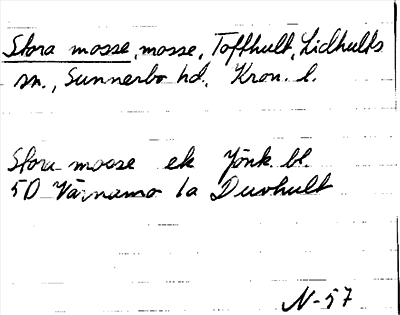 Stora mosse, mosse, Tofthult, Lidhults
sn., Sunnerbo hd. Kron. l.
Stora mosse ek Jönk. bl.
5D Värnamo 1a Duvhult
N-57